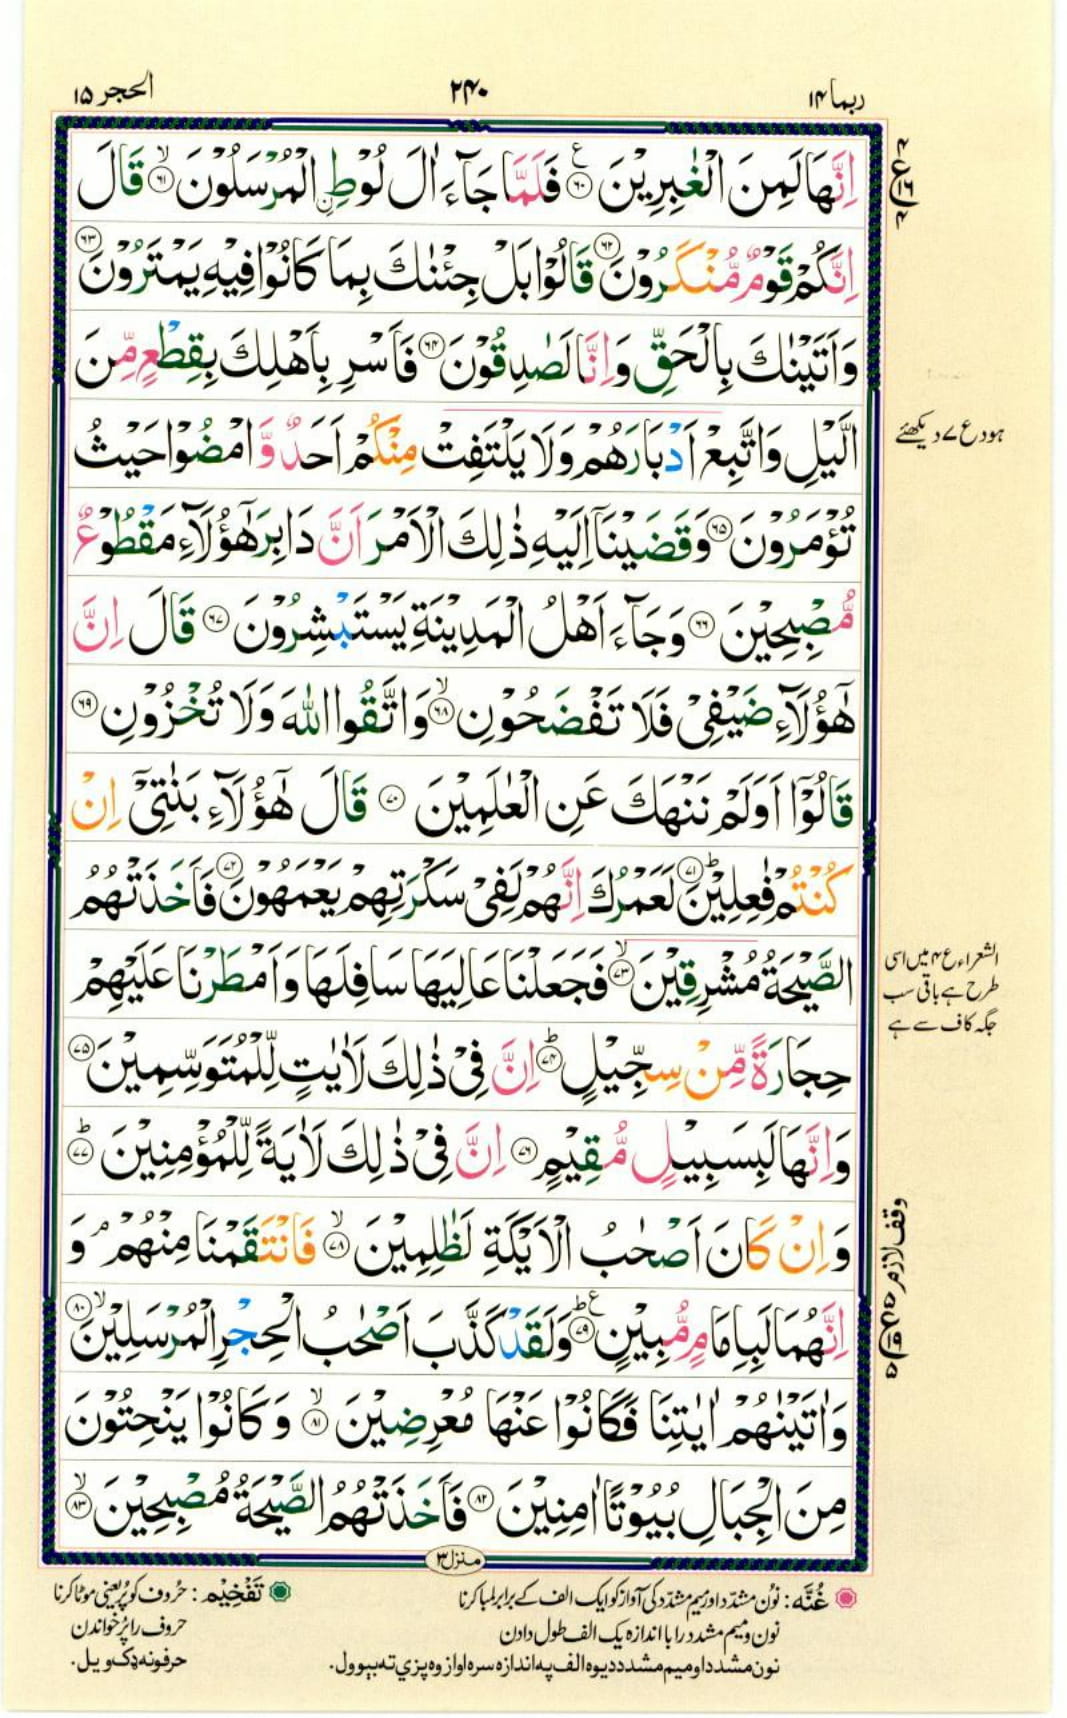 ربما ۱۴
۲۴۰
الحجر ۱۵
اِنَّهَا لَمِنَ الْغٰبِرِيْنَ ۶۰ فَلَمَّا جَآءَ اٰلَ لُوْطِ ِۨالْمُرْسَلُوْنَ ۶۱ قَالَ
اِنَّكُمْ قَوْمٌ مُّنْكَرُوْنَ ۶۲ قَالُوْا بَلْ جِئْنٰكَ بِمَا كَانُوْا فِيْهِ يَمْتَرُوْنَ ۶۳
وَاَتَيْنٰكَ بِالْحَقِّ وَاِنَّا لَصٰدِقُوْنَ ۶۴ فَاَسْرِ بِاَهْلِكَ بِقِطْعٍ مِّنَ
الَّيْلِ وَاتَّبِعْ اَدْبَارَهُمْ وَلَا يَلْتَفِتْ مِنْكُمْ اَحَدٌ وَّامْضُوْا حَيْثُ
تُؤْمَرُوْنَ ۶۵ وَقَضَيْنَآ اِلَيْهِ ذٰلِكَ الْاَمْرَ اَنَّ دَابِرَ هٰٓؤُلَآءِ مَقْطُوْعٌ
مُّصْبِحِيْنَ ۶۶ وَجَآءَ اَهْلُ الْمَدِيْنَةِ يَسْتَبْشِرُوْنَ ۶۷ قَالَ اِنَّ
هٰٓؤُلَآءِ ضَيْفِيْ فَلَا تَفْضَحُوْنِ ۶۸ وَاتَّقُوا اللّٰهَ وَلَا تُخْزُوْنِ ۶۹
قَالُوْٓا اَوَلَمْ نَنْهَكَ عَنِ الْعٰلَمِيْنَ ۷۰ قَالَ هٰٓؤُلَآءِ بَنٰتِيْٓ اِنْ
كُنْتُمْ فٰعِلِيْنَ ۷۱ لَعَمْرُكَ اِنَّهُمْ لَفِيْ سَكْرَتِهِمْ يَعْمَهُوْنَ ۷۲ فَاَخَذَتْهُمُ
الصَّيْحَةُ مُشْرِقِيْنَ ۷۳ فَجَعَلْنَا عَالِيَهَا سَافِلَهَا وَاَمْطَرْنَا عَلَيْهِمْ
حِجَارَةً مِّنْ سِجِّيْلٍ ۷۴ اِنَّ فِيْ ذٰلِكَ لَاٰيٰتٍ لِّلْمُتَوَسِّمِيْنَ ۷۵
وَاِنَّهَا لَبِسَبِيْلٍ مُّقِيْمٍ ۷۶ اِنَّ فِيْ ذٰلِكَ لَاٰيَةً لِّلْمُؤْمِنِيْنَ ۷۷
وَاِنْ كَانَ اَصْحٰبُ الْاَيْكَةِ لَظٰلِمِيْنَ ۷۸ فَانْتَقَمْنَا مِنْهُمْ ۘ وَ
اِنَّهُمَا لَبِاِمَامٍ مُّبِيْنٍ ۷۹ وَلَقَدْ كَذَّبَ اَصْحٰبُ الْحِجْرِ الْمُرْسَلِيْنَ ۸۰
وَاٰتَيْنٰهُمْ اٰيٰتِنَا فَكَانُوْا عَنْهَا مُعْرِضِيْنَ ۸۱ وَكَانُوْا يَنْحِتُوْنَ
مِنَ الْجِبَالِ بُيُوْتًا اٰمِنِيْنَ ۸۲ فَاَخَذَتْهُمُ الصَّيْحَةُ مُصْبِحِيْنَ ۸۳
ہود ع ۷ دیکھئے
الشعراء ع ۴ میں اسی
طرح ہے باقی سب
جگہ کاف سے ہے
وقف لازم
منزل ۳
غُنَّه: نُون مشدّد اور میم مشدّد کی آواز کو ایک الف کے برابر لمبا کرنا
نون و میم مشدد را با اندازه یک الف طول دادن
نون مشدد او میم مشدد دیوه الف په اندازه سره اواز وه پزي ته بېوول.
تَفْخِيْم: حُروف کو پُر یعنی موٹا کرنا
حروف را پُر خواندن
حرفونه ډک ویل.